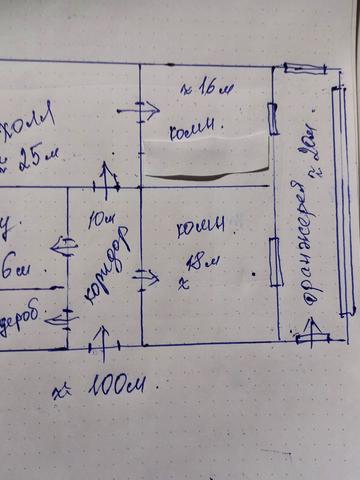 ≈ 16м
комн.
холл
≈ 25м
оранжерея
≈ 20м.
10м
коридор
комн.
18м
≈
у.
6м.
дероб.
≈ 100м.